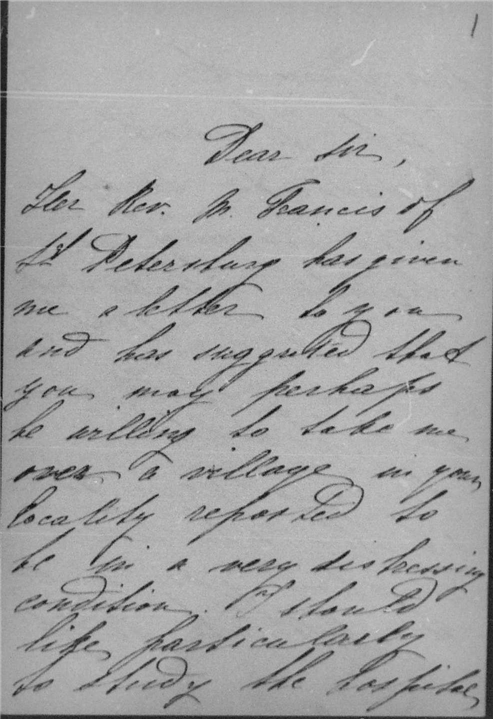 1
Dear Sir,
The Rev. Mr. Francis of
St Petersburg has given
me a letter to you
and has suggested that
you may perhaps
be willing to take me
over a village in your
locality reported to
be in a very distressing
condition. I should
like particularly
to study the hospital